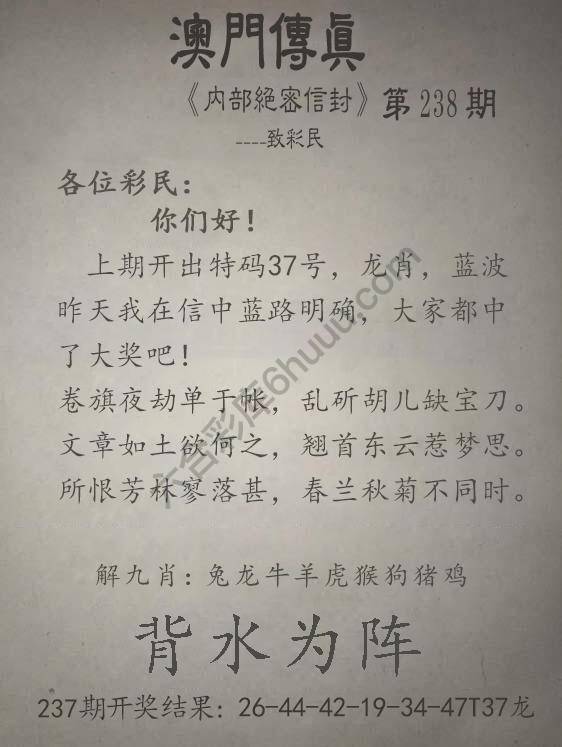 澳門傳眞
《内部絕密信封》第238期
----致彩民
各位彩民：
你们好！
上期开出特码37号，龙肖，蓝波
昨天我在信中蓝路明确，大家都中
了大奖吧！
卷旗夜劫单于帐，乱斫胡儿缺宝刀。
文章如土欲何之，翘首东云惹梦思。
所恨芳林寥落甚，春兰秋菊不同时。
解九肖：兔龙牛羊虎猴狗猪鸡
背水为阵
237期开奖结果：26-44-42-19-34-47T37龙
六合彩库6huuu.com